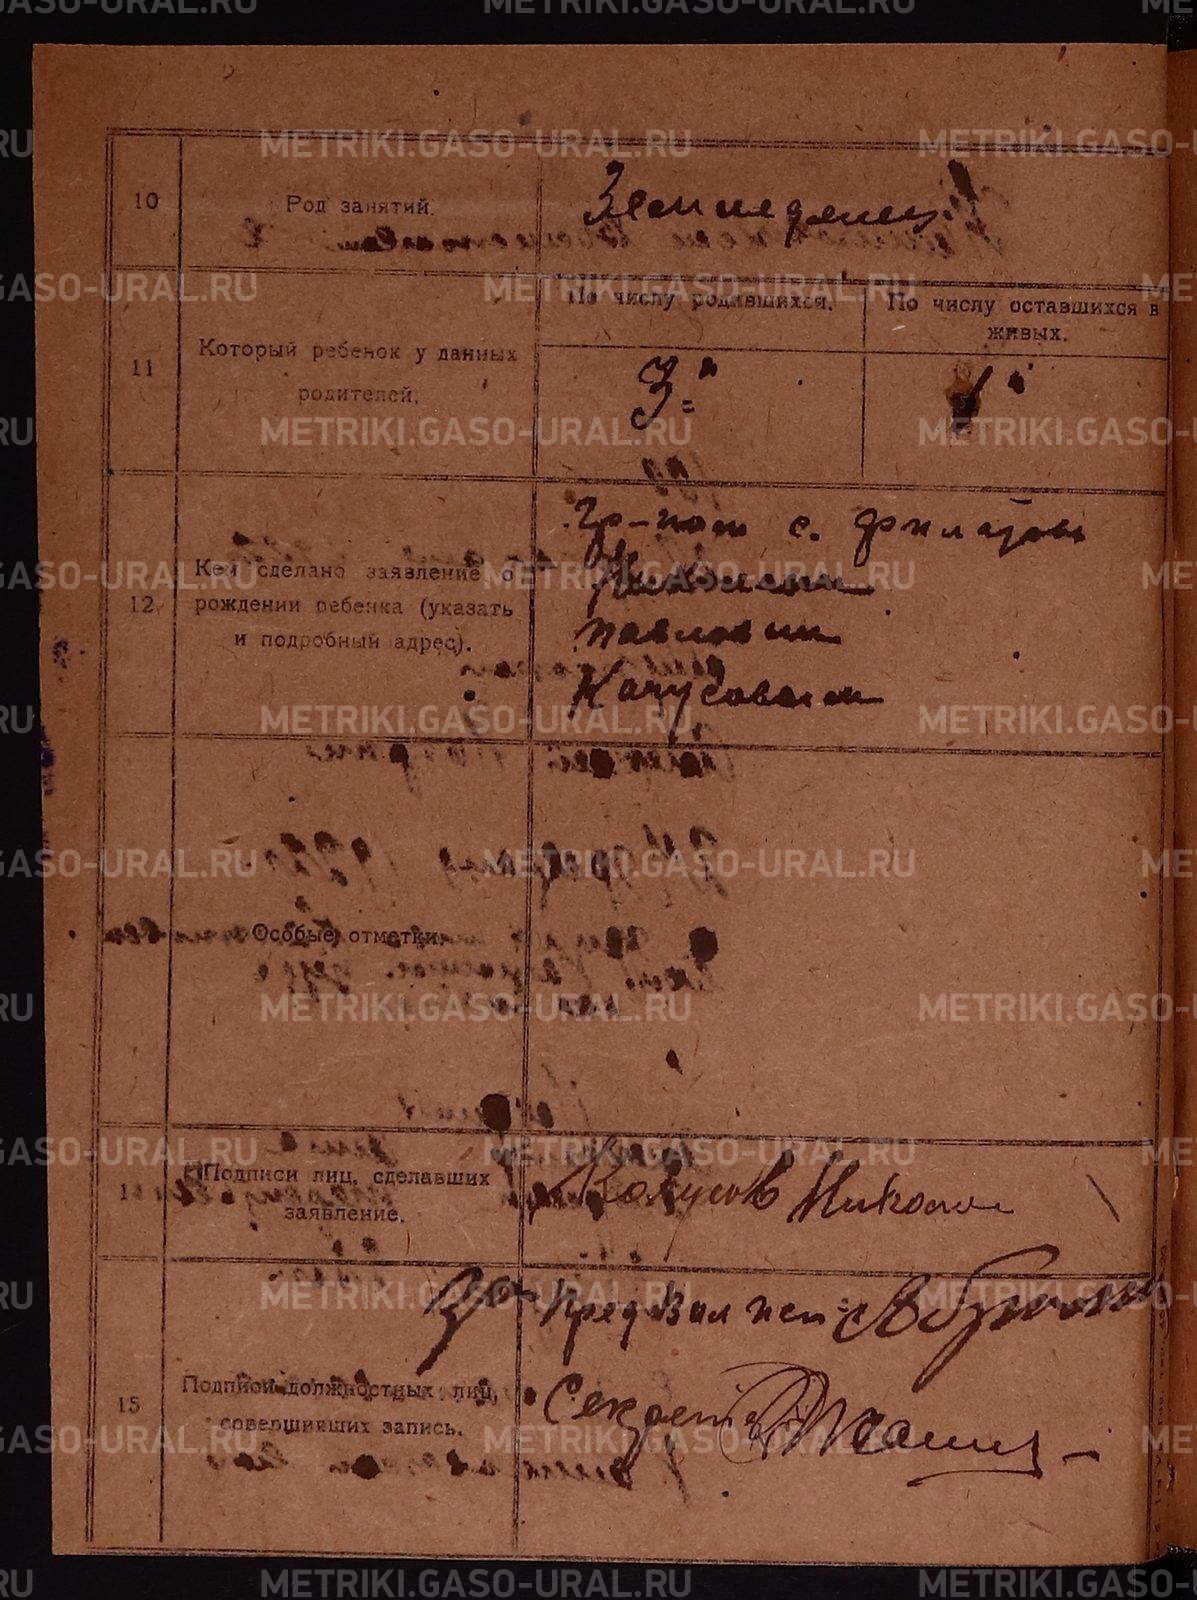 METRIKI.GASO-URAL.RU
10
Род занятий.
Земледелец
11
Который ребенок у данных
родителей.
По числу родившихся.
По числу оставшихся в
живых.
3й
1й
12
Кем сделано заявление о
рождении ребенка (указать
и подробный адрес).
Гр-ном с. Филатовы
Николаем
Павловым
Качусовым
Особые отметки.
1
Подписи лиц, сделавших
заявление.
Качусов Николай
15
Подписи должностных лиц,
совершивших запись.
Пред Вол исп
Секрет